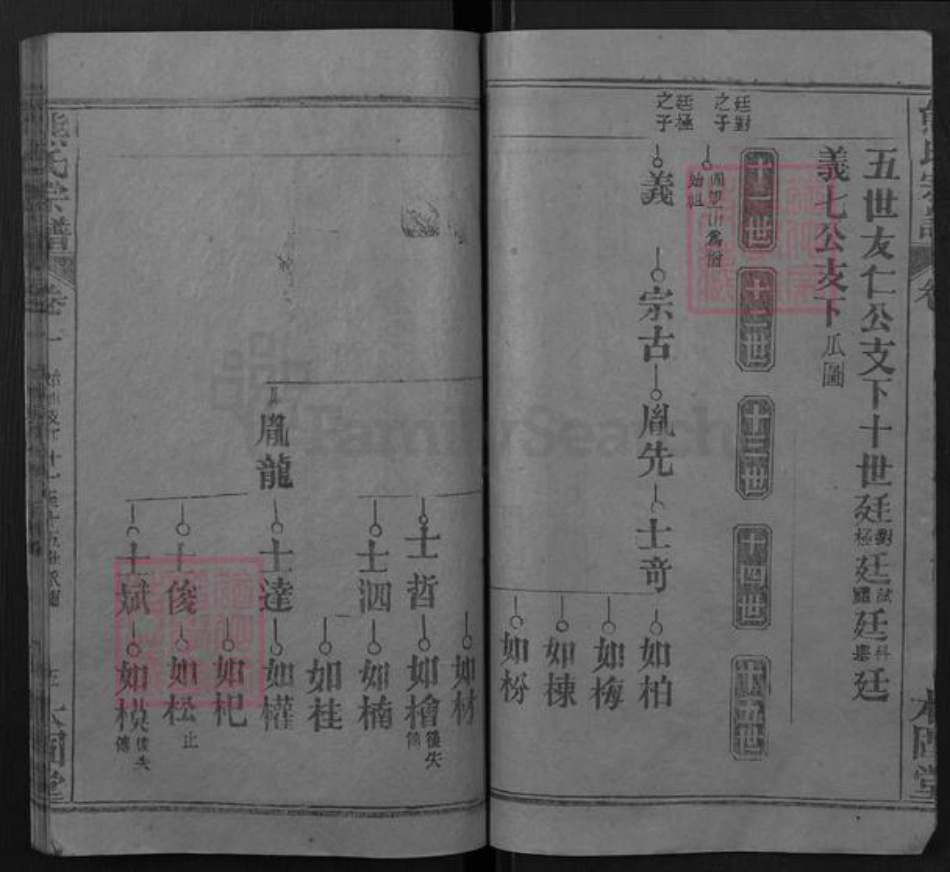 五世友仁公支下十世廷對廷試廷科廷
極 廷
義七公支下瓜圖
十一世
十二世
十三世
十四世
十五世
廷對之子
始祖
廷極之子
義
宗古
胤先
士奇
如柏
如梅
如棟
如枌
如材
士哲
如檜後失傳
士泗
如楠
如桂
胤龍
士達
如權
如杞
士俊
如松止
士斌
如後失傳
熊氏宗譜
卷一
本固堂
FamilySearch